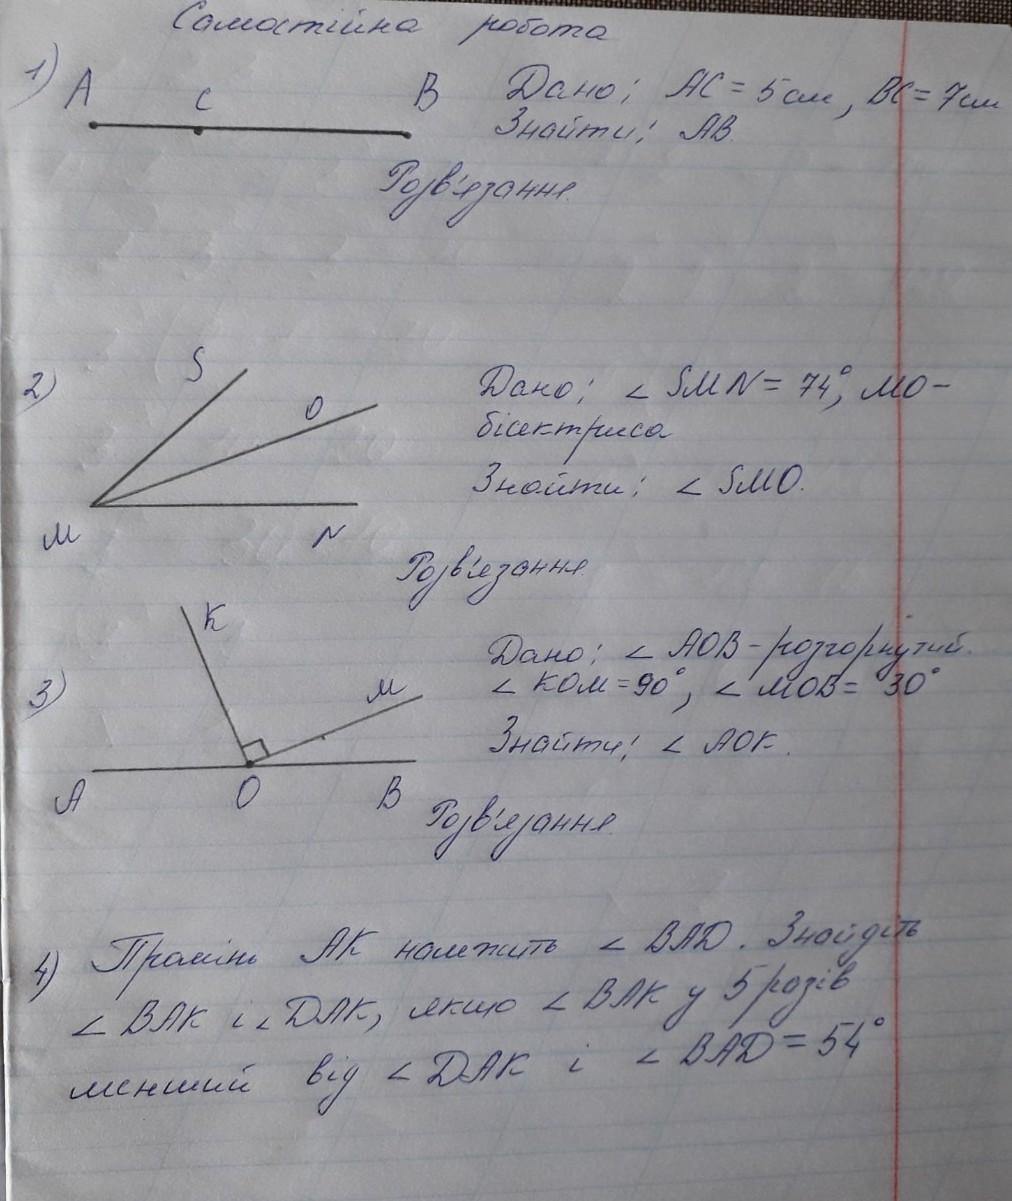 Самостійна робота
1) A C B Дано: AC = 5 см, BC = 7 см
Знайти: AB.
Розв'язання.
2) S O M N Дано: ∠ SMN = 74°, MO –
бісектриса
Знайти: ∠ SMO.
Розв'язання.
3) K M A O B Дано: ∠ AOB – розгорнутий.
∠ KOM = 90°, ∠ MOB = 30°
Знайти: ∠ AOK.
Розв'язання.
4) Промінь AK належить ∠ BAD. Знайдіть
∠ BAK і ∠ DAK, якщо ∠ BAK у 5 разів
менший від ∠ DAK і ∠ BAD = 54°